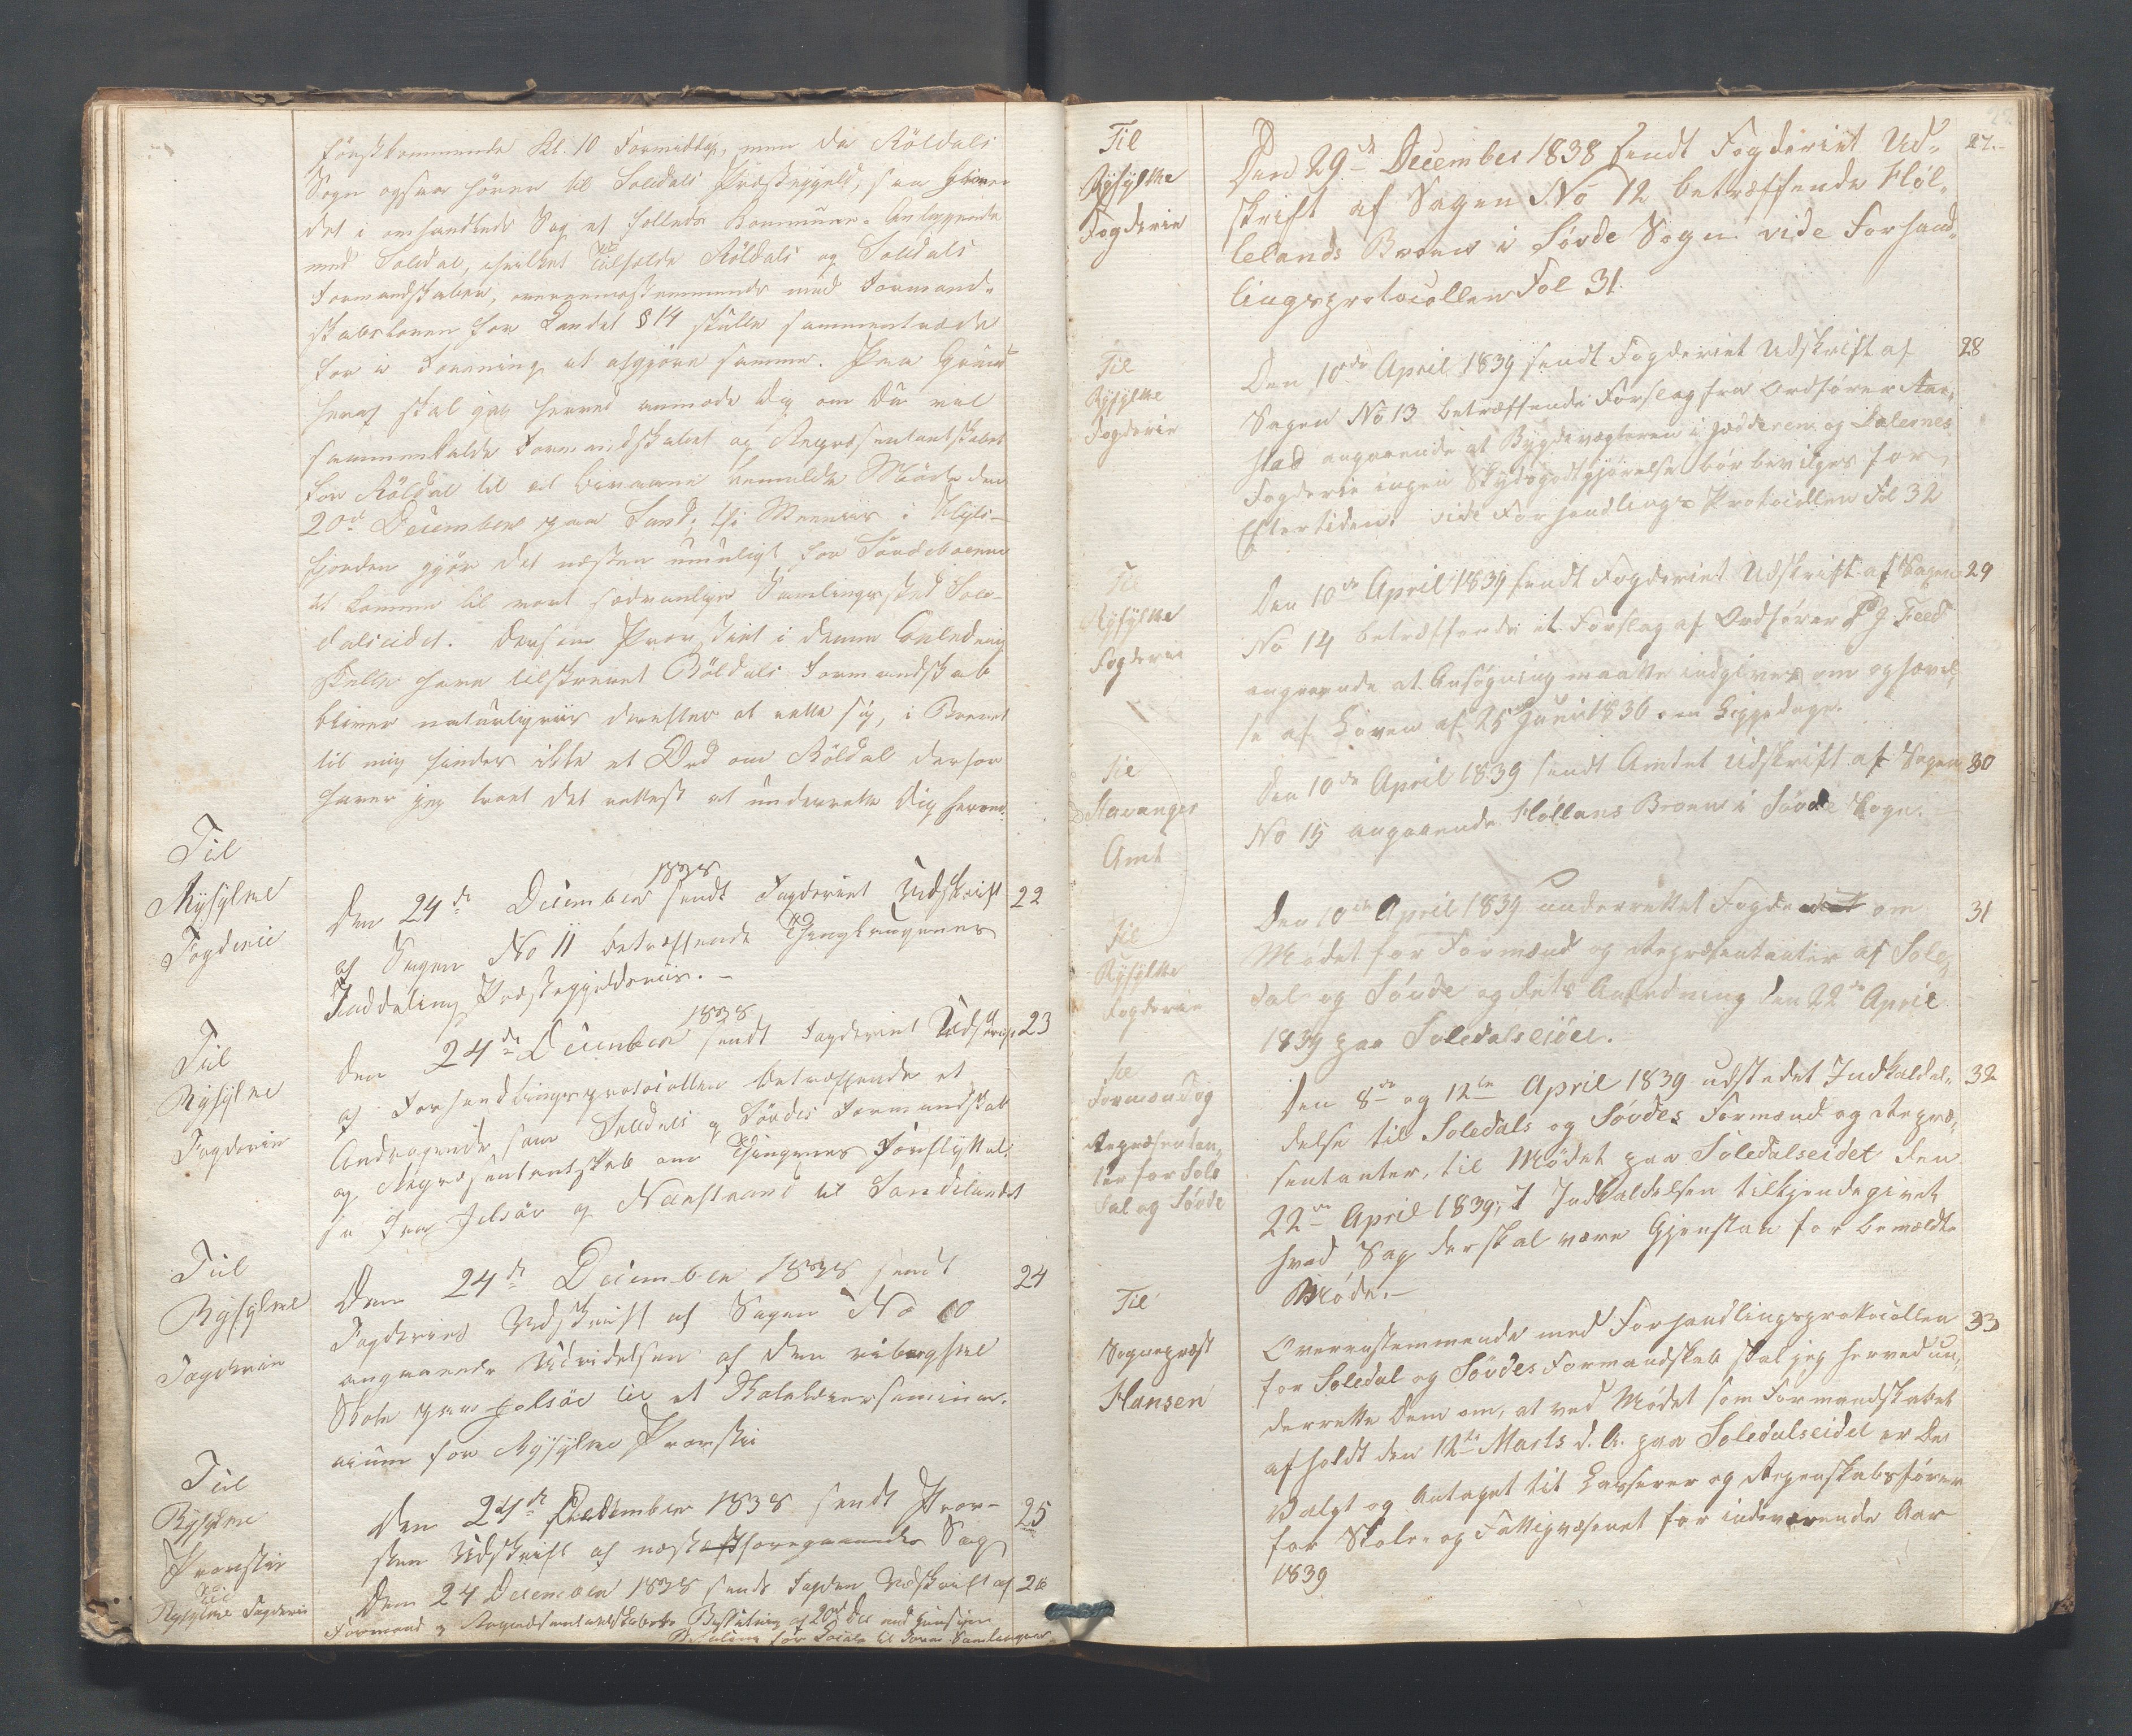 førstkommende Kl. 10 Formiddag, men da Röldals
Sogn ogsaa hörer til Soledals Præstegjeld, saa bliver
det i omhandlede Sag et fælleds Kommune-Anliggende
med Soledal, hvilket Tilfælde Röldals og Soledals
Formandskaber, overeensstemmende med Formand-
skabsloven for Landet § 14 skulle sammentræde
for i Forening at afgjöre samme. Paa Grund
heraf skal jeg herved anmode Dig om Du vil
sammenkalde Formandskabet og Repræsentantskabet
for Röldal til at bivaane bemeldte Möde den
20de December paa Sand; thi Meeniis i Hyls-
fjorden gjör det næsten umuligt for Søvdeboerne
at komme til vort sædvanlige Samlingssted Sole-
dalseidet. Dersom Provstiet i denne Anledning
skulle have tilskrevet Röldals Formandskab
bliver naturligviis derefter at rette sig, i Brevet
til mig findes ikke et Ord om Röldal derfor
haver jeg troet det rettest at underrette Dig herom.
Til
Ryfylke
Fogderie
1838
Den 24de December sendt Fogderiet Udskrift 22
af Sagen No 11 betræffende Thinglaugenes
Inddeling Præstegjeldsviis. -
Til
Ryfylke
Fogderie
1838
Den 24de December sendt Fogderiet Udskrift 23
af Forhandlingsprotocollen betræffende et
Andragende fra Soledals og Søvdes Formandskab
og Repræsentantskab om Thingenes Forflyttel-
se fra Jelsöe og Narstrand til Sandelandet
Til
Ryfylke
Fogderie
Den 24de December 1838 sendt 24
Fogderiet Udskrift af Sagen No 10
angaaende Udvidelsen af den viborgske
Skole paa Jelsöe til et Skolelærersemina-
rium for Ryfylke Provstie
Til
Ryfylke
Provstie
Den 24de December 1838 sendt Prov- 25
sten Udskrift af næstforegaaende Sag
Til
Ryfylke Fogderie
Den 24 December 1838 sendt Fogden Udskrift af 26
Formand og Repræsentantskabets Beslutning af 20de Dec med Hensyn
til Sand Samlinger
Til
Ryfylke
Fogderie
Den 29de December 1838 sendt Fogderiet Ud- 27.
skrift af Sagen No 12 betræffende Høl-
lelands Broen i Søvde Sogn vide Forhand-
lingsprotocollen Fol 31.
Til
Ryfylke
Fogderie
Den 10de April 1839 sendt Fogderiet Udskrift af 28
Sagen No 13 betræffende Forslag fra Ordfører Aar-
stad angaaende at Bygdevægteren i Jædderen og Dalernes
Fogderie ingen Skydsgodtgjørelse bør bevilges for
Eftertiden. vide Forhandlings Protocollen Fol 32
Til
Ryfylke
Fogderie
Den 10de April 1839 sendt Fogderiet Udskrift af Sagen 29
No 14 betræffende et Forslag af Ordfører P J Feed
angaaende at Ansøgning maatte indgives om ophævel-
se af Loven af 25de Juni 1836 om Liggedage.
Til
Stavanger
Amt
Den 10de April 1839 sendt Amtet Udskrift af Sagen 30
No 15 angaaende Høllans Broen i Søvde Sogn.
Til
Ryfylke
Fogderie
Den 10de April 1839 underrettet Fogden om 31
Mødet for Formænd og Repræsentanter af Sole-
dal og Søvde og dets Anledning den 22de April
1839 paa Soledalseidet.
Til
Formænd og
Repræsentan-
ter for Sole
dal og Søvde
Den 8de og 12te April 1839 udstedet Indkaldel- 32
delse til Soledals og Søvdes Formænd og Repræ-
sentanter, til Mødet paa Soledalseidet den
22de April 1839; I Indkaldelsen tilkjendegivet
hvad Sag der skal være Gjenstan for bemældte
Møde.-
Til
Sognepræst
Hansen
Overenstemmende med Forhandlingsprotocollen 33
for Soledal og Søvdes Formandskab skal jeg herved un-
derrette Dem om, at ved Mødet som Formandskabet
afholdt den 12te Marts d. A. paa Soledalseidet er De
Valgt og Antaget til Kasserer og Regnskabsfører
for Skole- og Fattigvæsenet for indeværende Aar
1839